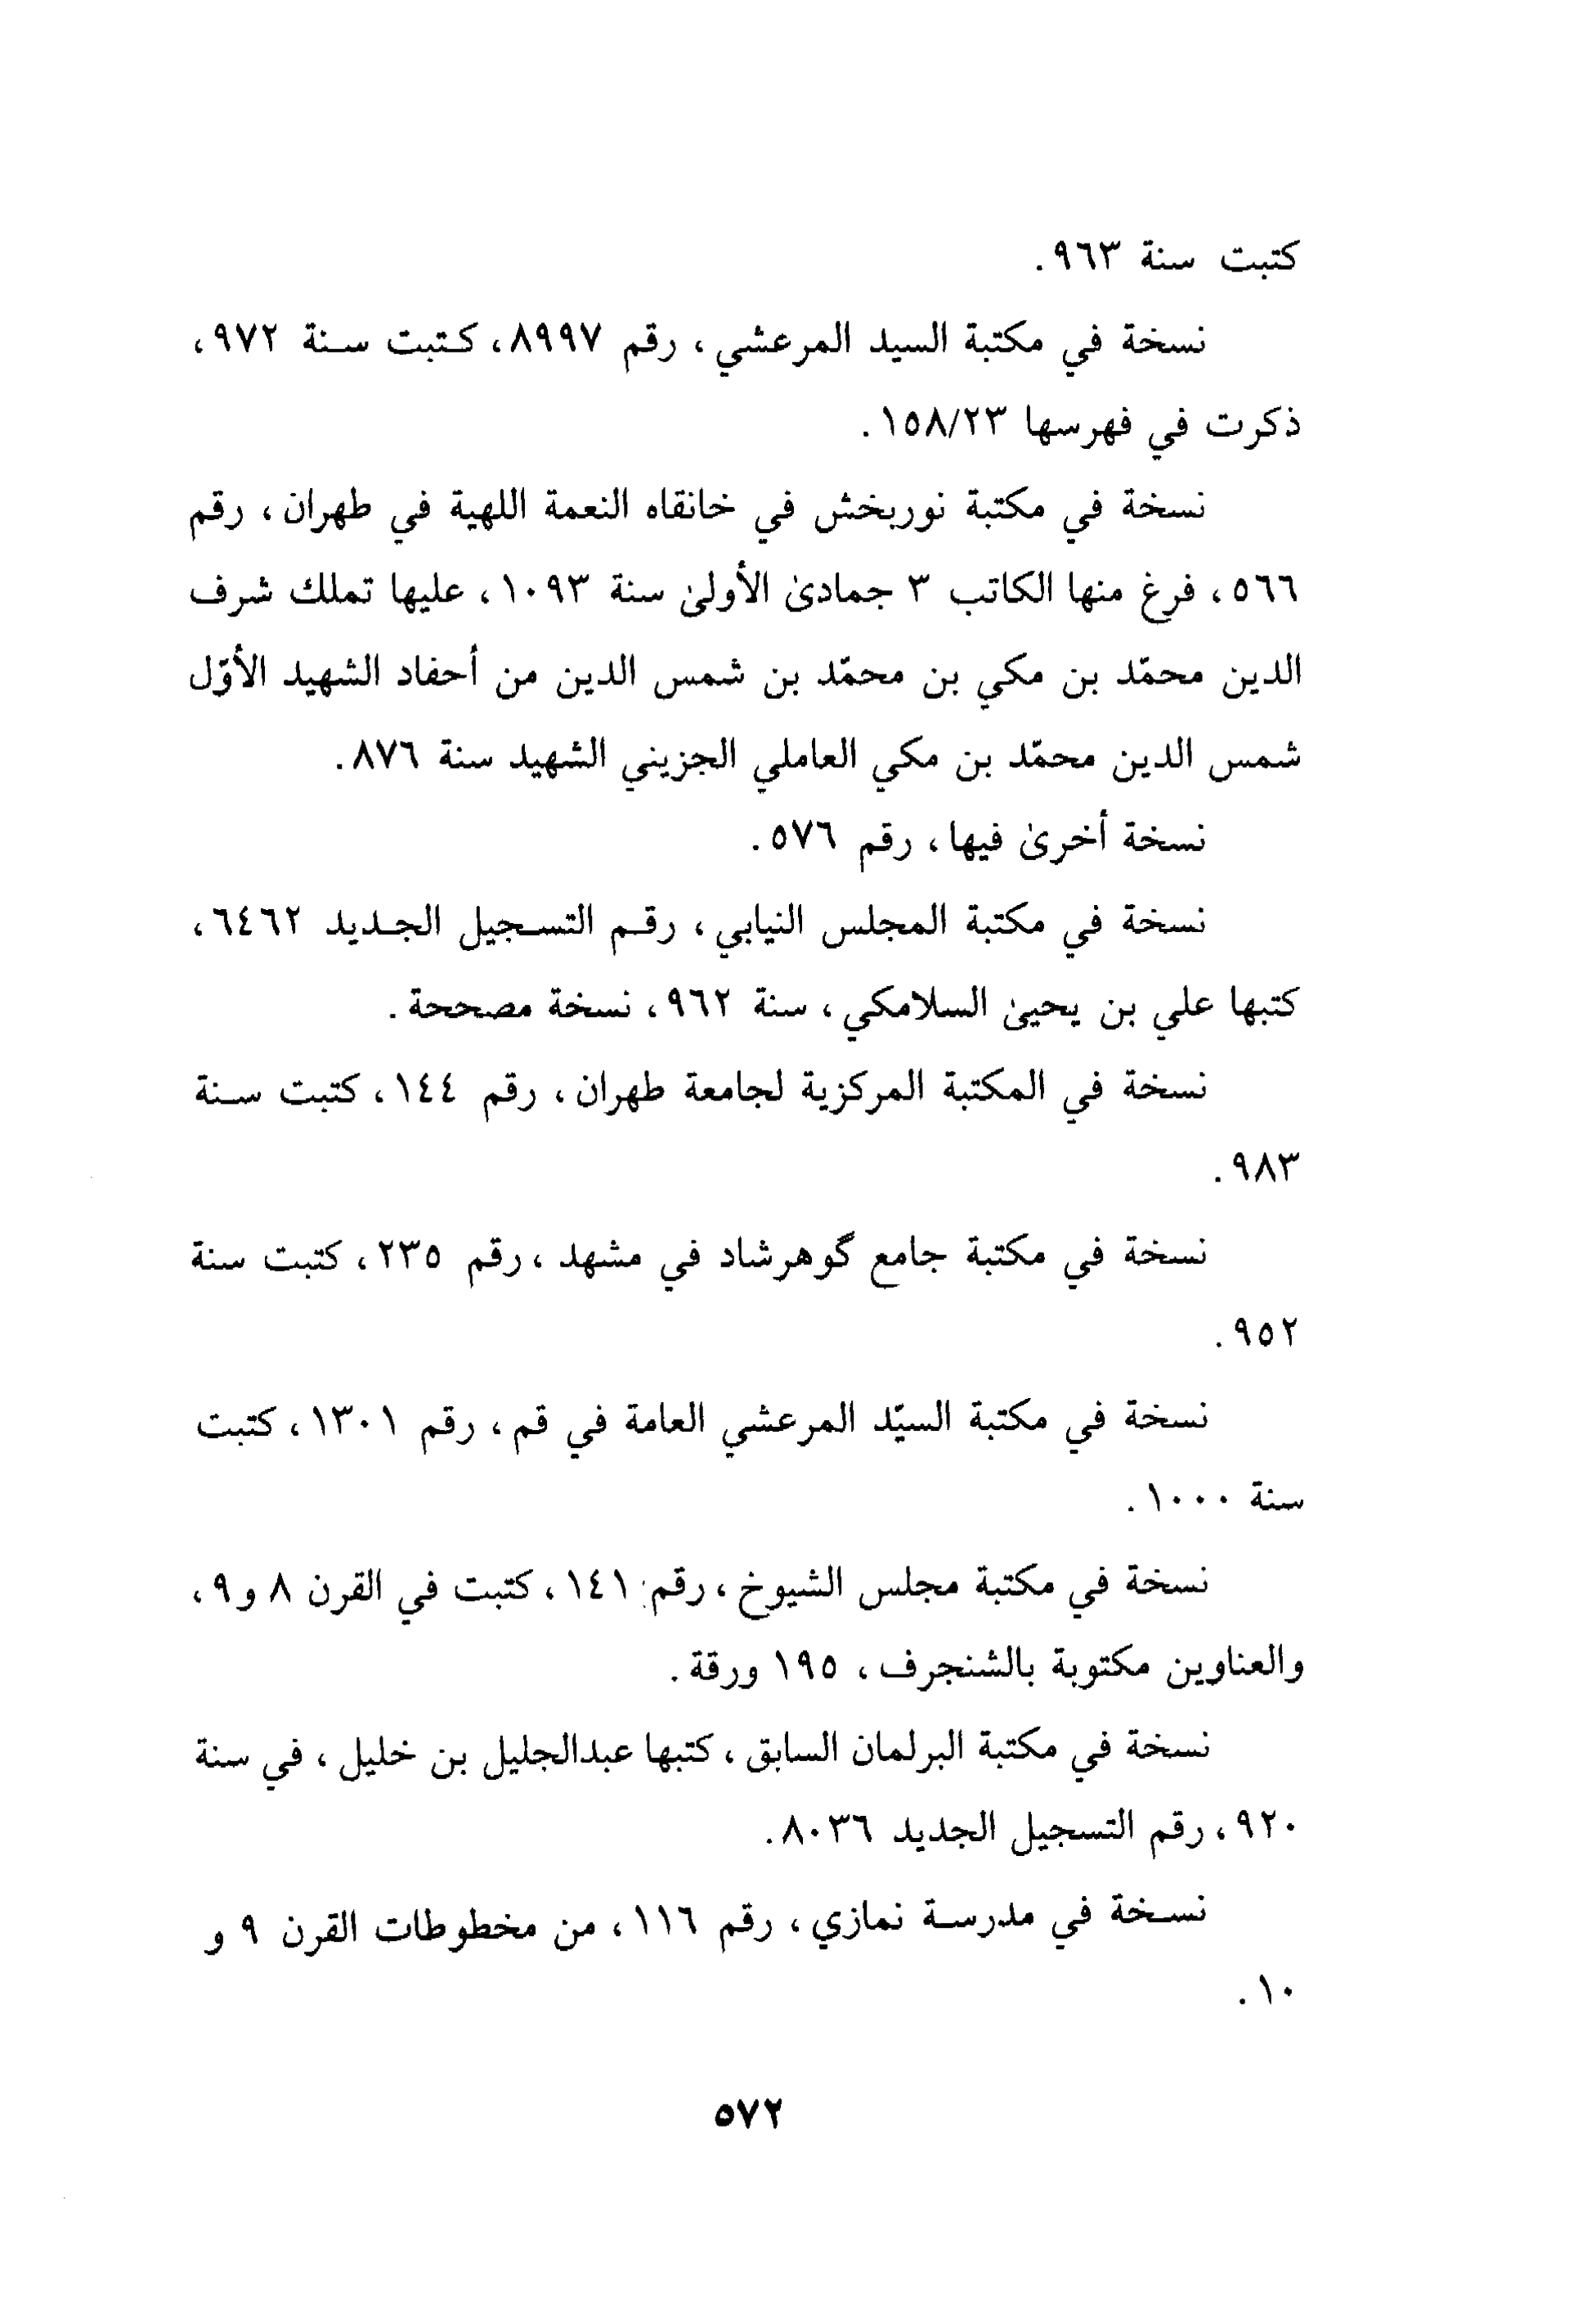 كتبت سنة ٩٦٣.
نسخة في مكتبة السيد المرعشي، رقم ٨٩٩٧، كتبت سنة ٩٧٢،
ذكرت في فهرسها ١٥٨/٢٣.
نسخة في مكتبة نوربخش في خانقاه النعمة اللهية في طهران، رقم
٥٦٦، فرغ منها الكاتب ٣ جمادىٰ الأولىٰ سنة ١٠٩٣، عليها تملك شرف
الدين محمّد بن مكي بن محمّد بن شمس الدين من أحفاد الشهيد الأوّل
شمس الدين محمّد بن مكي العاملي الجزيني الشهيد سنة ٨٧٦.
نسخة أخرىٰ فيها، رقم ٥٧٦.
نسخة في مكتبة المجلس النيابي، رقم التسجيل الجديد ٦٤٦٢،
كتبها علي بن يحيىٰ السلامكي، سنة ٩٦٢، نسخة مصححة.
نسخة في المكتبة المركزية لجامعة طهران، رقم ١٤٤، كتبت سنة
٩٨٣.
نسخة في مكتبة جامع گوهرشاد في مشهد، رقم ٢٣٥، كتبت سنة
٩٥٢.
نسخة في مكتبة السيّد المرعشي العامة في قم، رقم ١٣٠١، كتبت
سنة ١٠٠٠.
نسخة في مكتبة مجلس الشيوخ، رقم: ١٤١، كتبت في القرن ٨ و٩،
والعناوين مكتوبة بالشنجرف، ١٩٥ ورقة.
نسخة في مكتبة البرلمان السابق، كتبها عبدالجليل بن خليل، في سنة
٩٢٠، رقم التسجيل الجديد ٨٠٣٦.
نسخة في مدرسة نمازي، رقم ١١٦، من مخطوطات القرن ٩ و
١٠.
٥٧٢